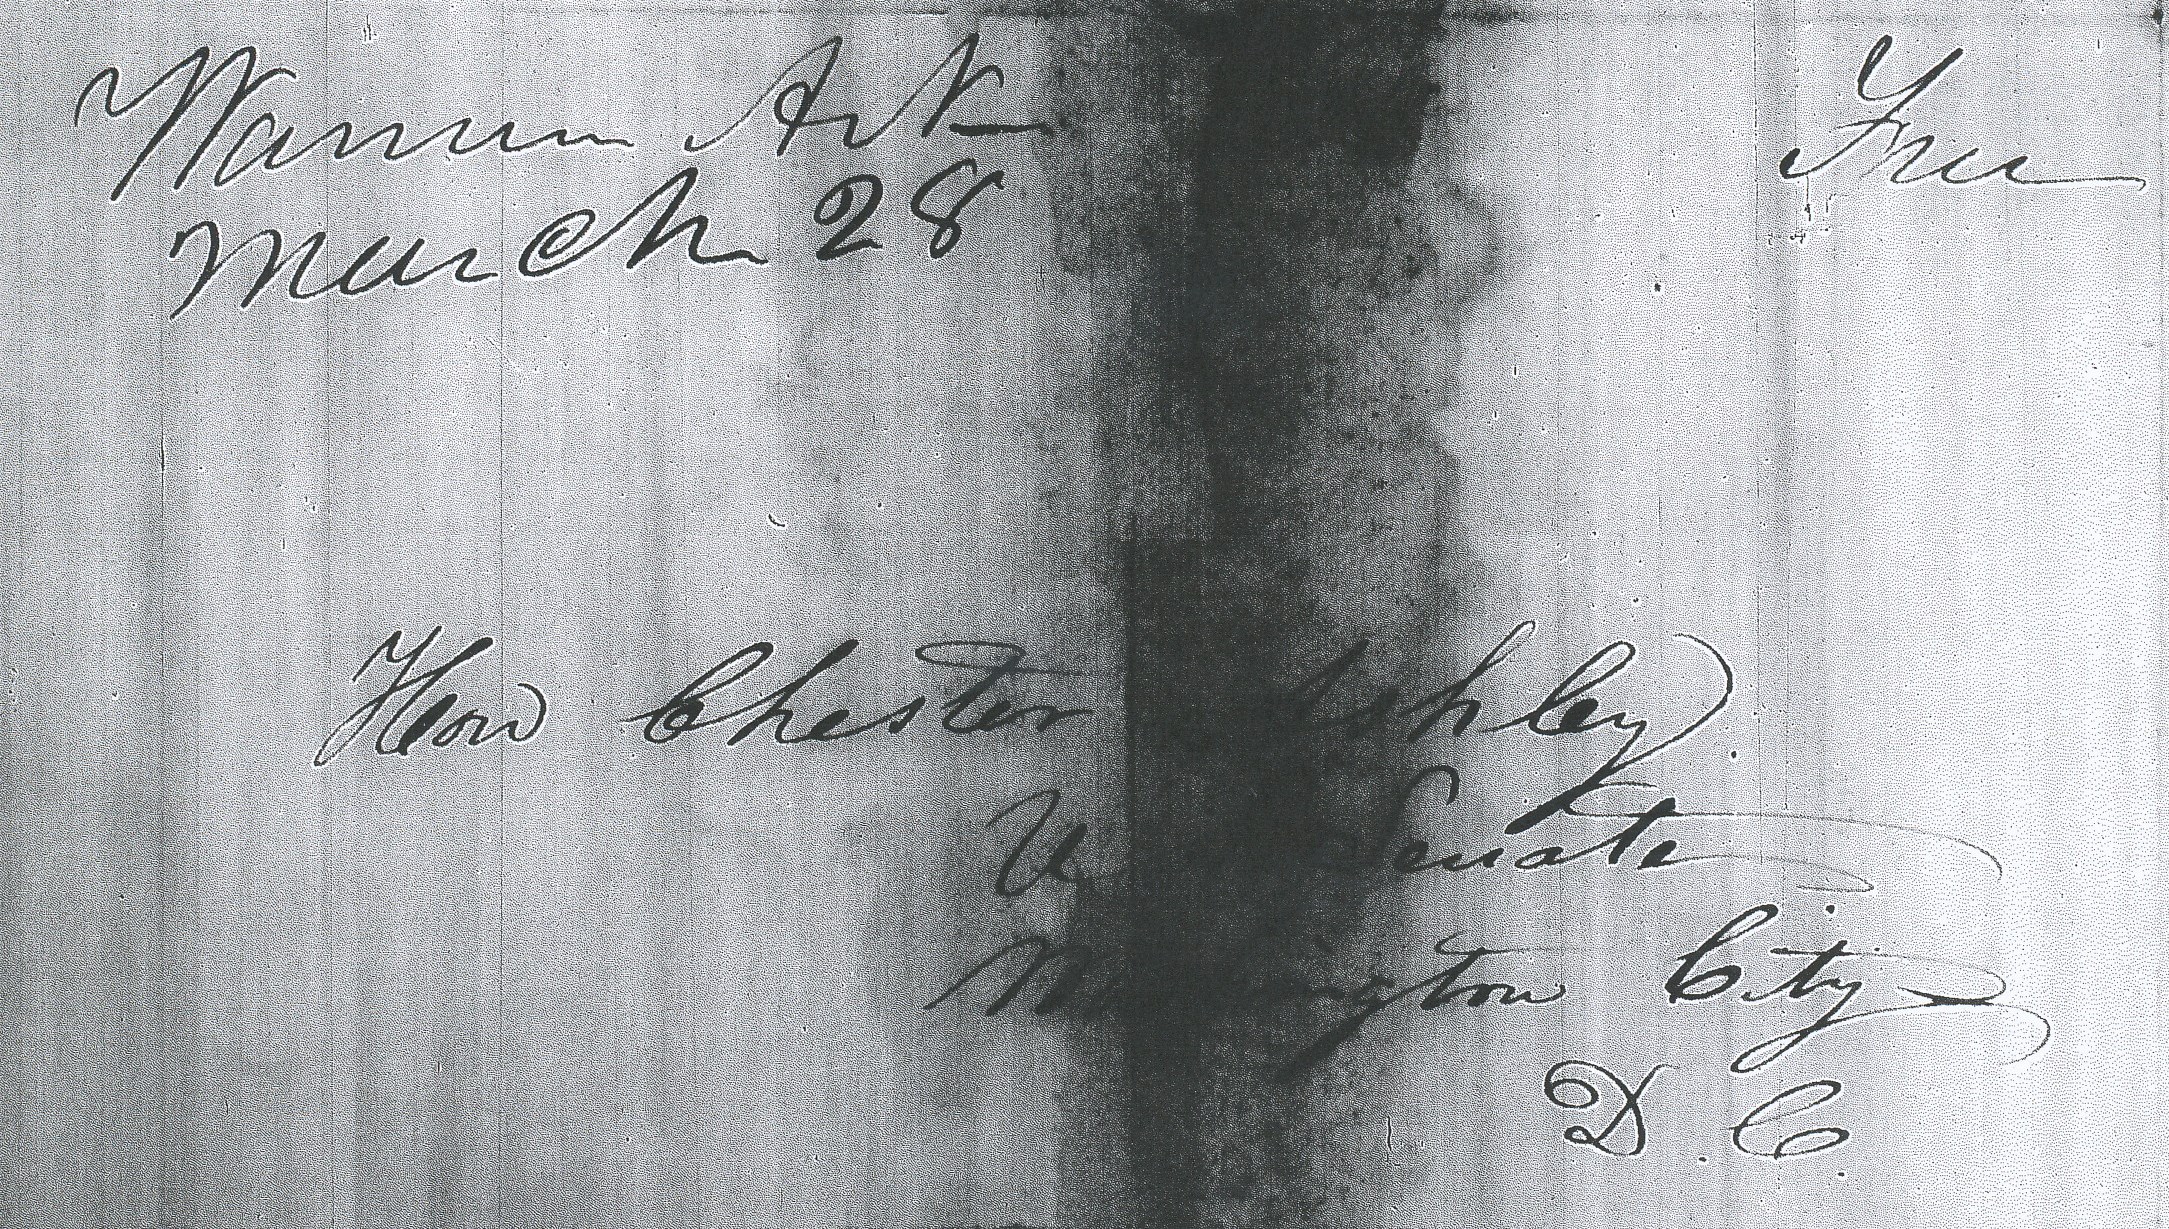 Warren Ark
March 28
Free
Hon Chester Ashley.
U Senate
Washington City
D. C.